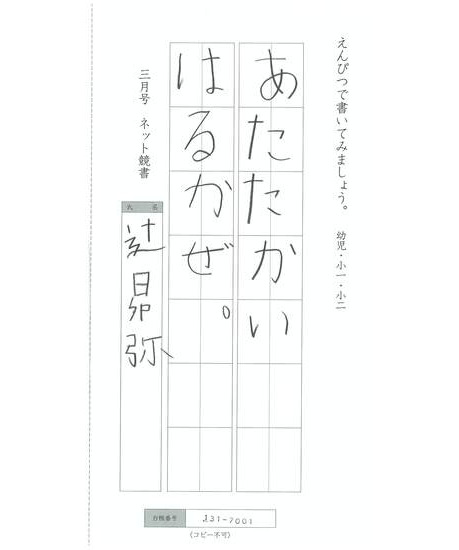 えんぴつで書いてみましょう。 幼児・小一・小二
あたたかい
はるかぜ。
三月号 ネット競書
氏名
辻昴弥
台帳番号 131-7001
(コピー不可)